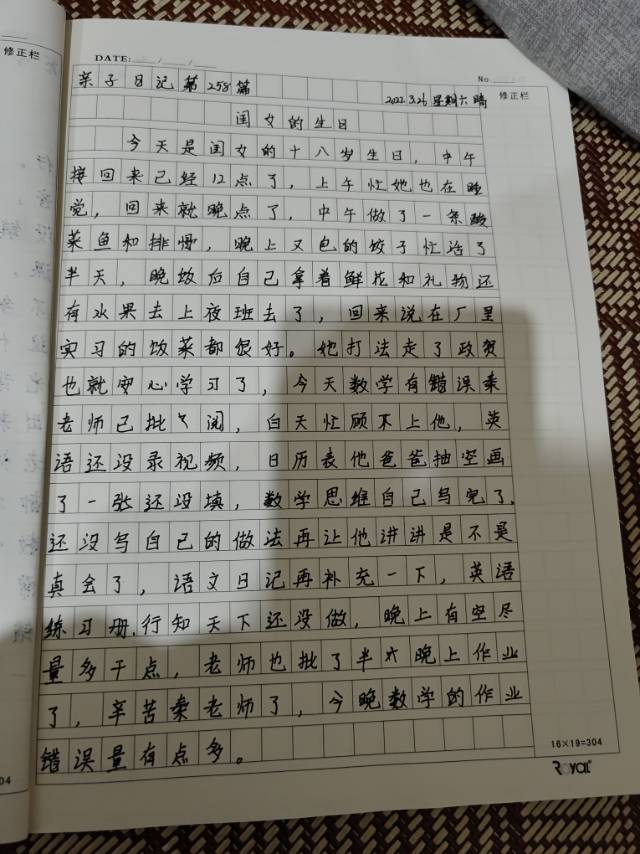 修正栏
DATE: / /
No.
亲子日记第258篇 2022.3.26 星期六 晴
修正栏
闺女的生日
今天是闺女的十八岁生日，中午
接回来已经12点了，上午忙她也在睡
觉，回来就晚点了，中午做了一条酸
菜鱼和排骨，晚上又包的饺子忙活了
半天，晚饭后自己拿着鲜花和礼物还
有水果去上夜班去了，回来说在厂里
实习的饭菜都很好。她打法走了政贺
也就安心学习了，今天数学有错误秦
老师已批阅，白天忙顾不上他，英
语还没录视频，日历表他爸爸抽空画
了一张还没填，数学思维自己写完了，
还没写自己的做法再让他讲讲是不是
真会了，语文日记再补充一下，英语
练习册，行知天下还没做，晚上有空尽
量多干点，老师也批了半 晚上作业
了，辛苦秦老师了，今晚数学的作业
错误量有点多。
16×19=304
Royal
04